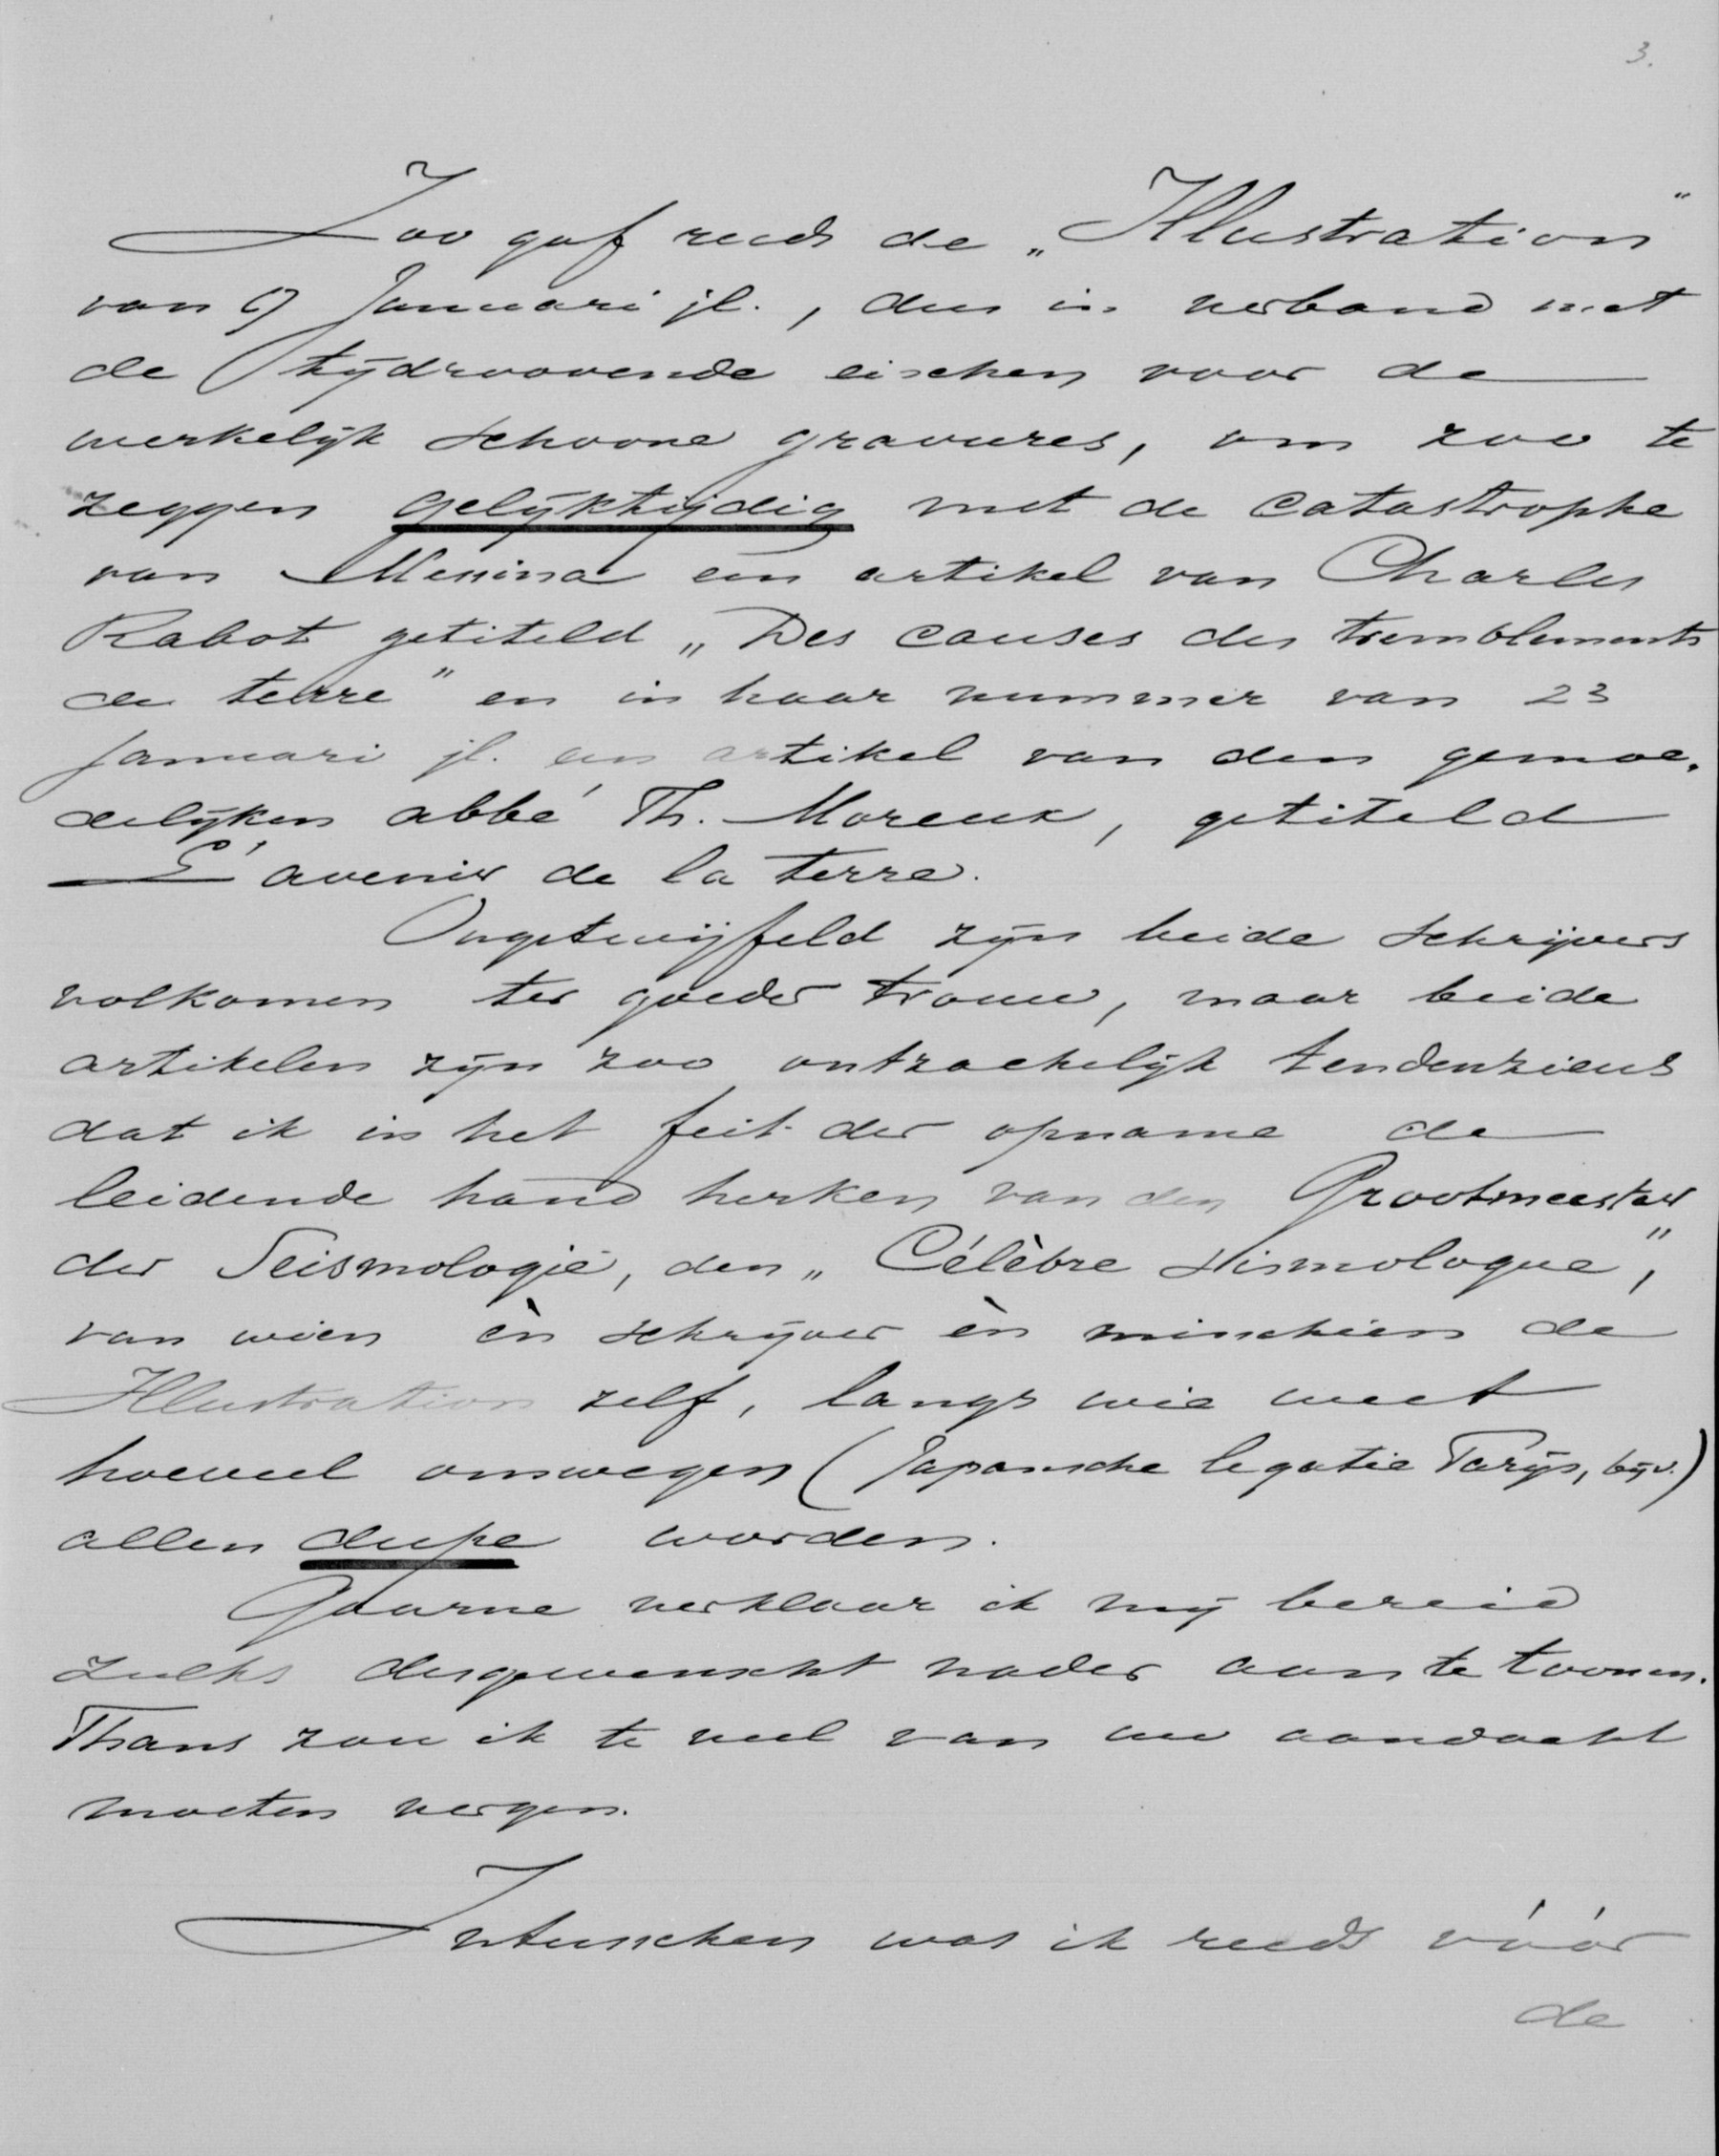 3.
Zoo gaf reeds de „Illustration"
van 9 Januari jl., dus in verband met
de tijdroovende eischen voor de
werkelijk schoone gravures, om zoo te
zeggen gelijktijdig met de catastrophe
van Messina een artikel van Charles
Rabot getiteld „Des causes des tremblements
de terre" en in haar nummer van 23
Januari jl. een artikel van den gemoe-
delijken abbé Th. Moreux, getiteld
L'avenir de la terre.
Ongetwijfeld zijn beide schrijvers
volkomen ter goeder trouw, maar beide
artikelen zijn zoo ontzachelijk tendenzieus
dat ik in het feit der opname de
leidende hand herken van den Grootmeester
der Seismologie, den „Célèbre sismologue",
van wien èn schrijver èn misschien de
Illustration zelf, langs wie weet
hoeveel omwegen (Japansche legatie Parijs, bijv.)
allen dupe worden.
Gaarne verklaar ik mij bereid
zulks desgewenscht nader aan te toonen.
Thans zou ik te veel van uw aandacht
moeten vergen.
Intusschen was ik reeds vóór
de